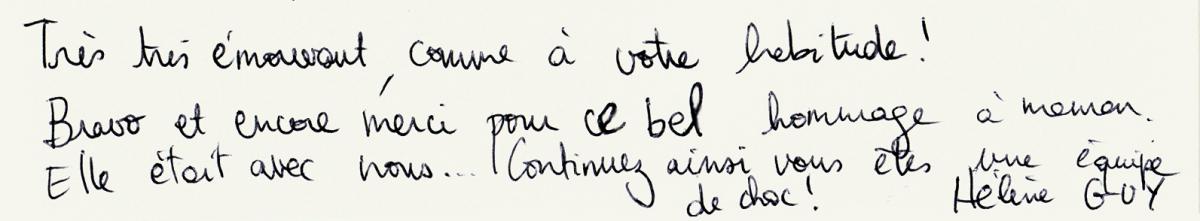 Très très émouvant, comme à votre habitude !
Bravo et encore merci pour ce bel hommage à maman.
Elle était avec nous... Continuez ainsi vous êtes une équipe
de choc ! Hélène GUY